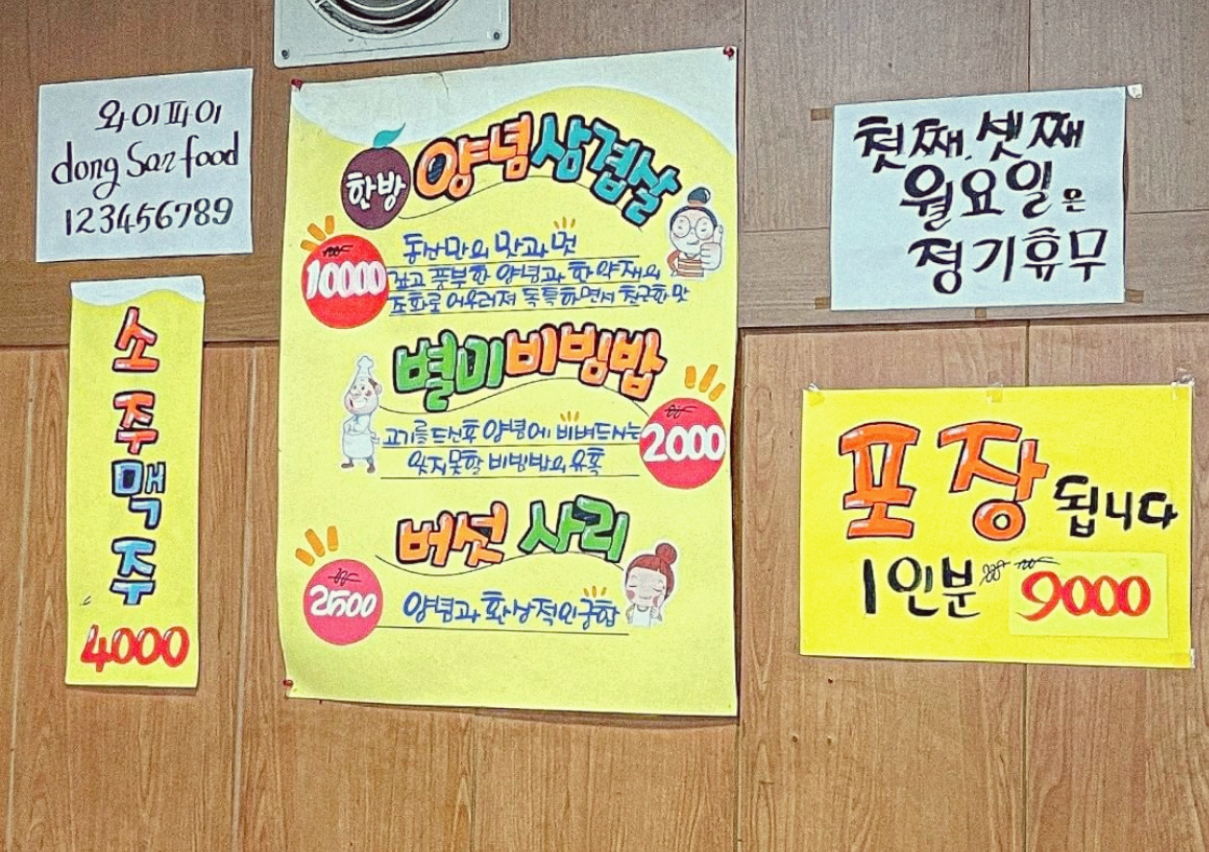 와이파이
dong San food
123456789
소
주
맥
주
4000
한방 양념삼겹살
10000
동산만의 맛과 멋
깊고 풍부한 양념과 한약재의
조화로 어우러져 독특하면서 친근한 맛
별미비빔밥
고기를 드신후 양념에 비벼드시는
잊지못할 비빔밥의 유혹
2000
버섯 사리
2500
양념과 환상적인 궁합
첫째, 셋째
월요일은
정기휴무
포장됩니다
1인분 9000